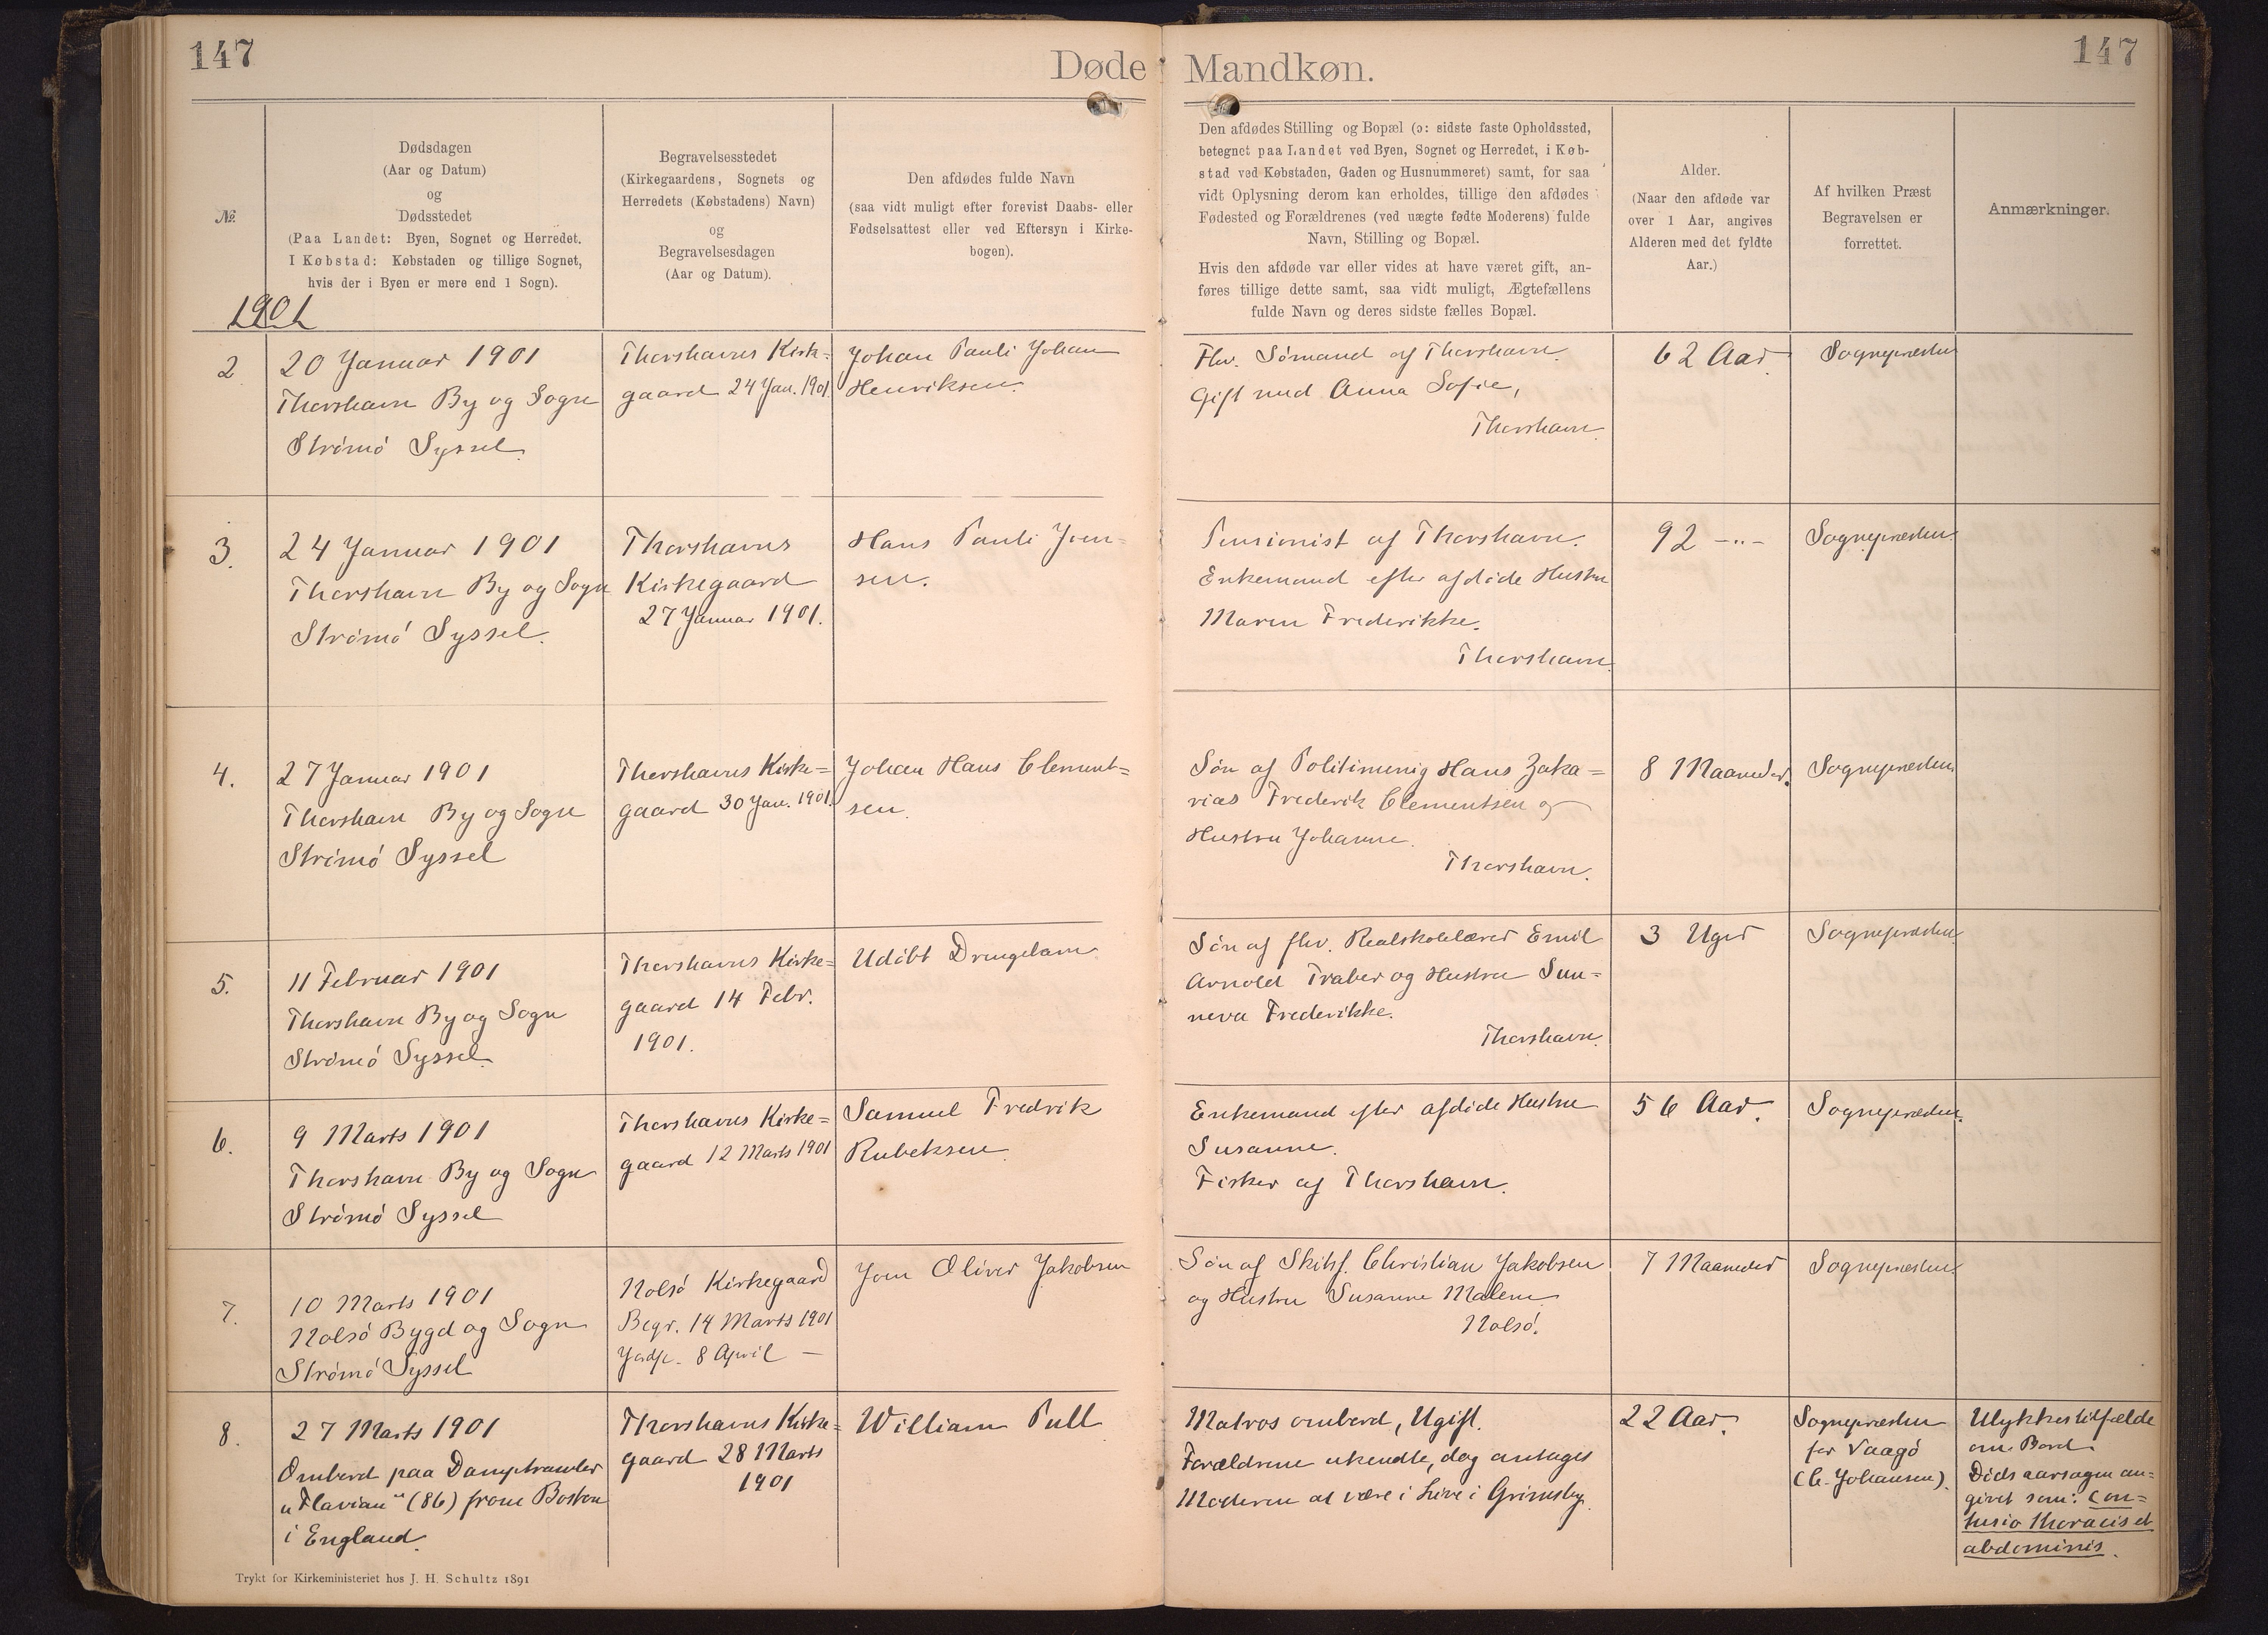 147
Døde Mandkøn.
147
№
Dødsdagen
(Aar og Datum)
og
Dødsstedet
(Paa Landet: Byen, Sognet og Herredet.
I Købstad: Købstaden og tillige Sognet,
hvis der i Byen er mere end 1 Sogn).
Begravelsesstedet
(Kirkegaardens, Sognets og
Herredets (Købstadens) Navn)
og
Begravelsesdagen
(Aar og Datum).
Den afdødes fulde Navn
(saa vidt muligt efter forevist Daabs- eller
Fødselsattest eller ved Eftersyn i Kirke-
bogen).
Den afdødes Stilling og Bopæl (ɔ: sidste faste Opholdssted,
betegnet paa Landet ved Byen, Sognet og Herredet, i Køb-
stad ved Købstaden, Gaden og Husnummeret) samt, for saa
vidt Oplysning derom kan erholdes, tillige den afdødes
Fødested og Forældrenes (ved uægte fødte Moderens) fulde
Navn, Stilling og Bopæl.
Hvis den afdøde var eller vides at have været gift, an-
føres tillige dette samt, saa vidt muligt, Ægtefællens
fulde Navn og deres sidste fælles Bopæl.
Alder.
(Naar den afdøde var
over 1 Aar, angives
Alderen med det fyldte
Aar.)
Af hvilken Præst
Begravelsen er
forrettet.
Anmærkninger.
1901
2
20 Januar 1901
Thorshavn By og Sogn
Strømø Syssel.
Thorshavns Kirk-
gaard 24 Jan. 1901.
Johan Pauli Johan
Henriksen.
Fhv. Sømand af Thorshavn.
Gift med Anna Sofie,
Thorshavn.
62 Aar.
Sognepræsten
3.
24 Januar 1901
Thorshavn By og Sogn
Strømø Syssel.
Thorshavns
Kirkegaard
27 Januar 1901.
Hans Pauli Joen-
sen.
Pensionist af Thorshavn.
Enkemand efter afdøde Hustru
Maren Frederikke.
Thorshavn.
92 -"-
Sognepræsten.
4.
27 Januar 1901
Thorshavn By og Sogn
Strømø Syssel
Thorshavns Kirke=
gaard 30 Jan. 1901.
Johan Hans Clement=
sen.
Søn af Politimenig Hans Zaka=
rias Frederik Clementsen og
Hustru Johanne.
Thorshavn.
8 Maaneder.
Sognepræsten
5.
11 Februar 1901
Thorshavn By og Sogn
Strømø Syssel.
Thorshavns Kirke=
gaard 14 Febr.
1901.
Udøbt Drengebarn
Søn af fhv. Realskolelærer Emil
Arnold Traber og Hustru Sun=
neva Frederikke.
Thorshavn.
3 Uger
Sognepræsten
6.
9 Marts 1901
Thorshavn By og Sogn
Strømø Syssel
Thorshavns Kirke=
gaard 12 Marts 1901
Samuel Fredrik
Rubeksen
Enkemand efter afdøde Hustru
Susanne.
Fisker af Thorshavn.
56 Aar.
Sognepræsten.
7.
10 Marts 1901
Nolsø Bygd og Sogn
Strømø Syssel
Nolsø Kirkegaard
Begr. 14 Marts 1901
Jordp. 8 April —
Joen Oliver Jakobsen
Søn af Skibsf. Christian Jakobsen
og Hustru Susanne Malene
Nolsø.
7 Maaneder
Sognepræsten.
8.
27 Marts 1901
Ombord paa Damptrawler
"Flavian" (86) from Boston
i England.
Thorshavns Kirke=
gaard 28 Marts
1901
William Pull
Matros ombord, Ugift.
Forældrene ukendte, dog antages
Moderen at være i Live i Grimsby.
22 Aar.
Sognepræsten
for Vaagø
(C. Johansen).
Ulykkestilfælde
om Bord.
Dødsaarsagen an=
givet som: Con=
tusio thoracis et
abdominis.
Trykt for Kirkeministeriet hos J. H. Schultz 1891